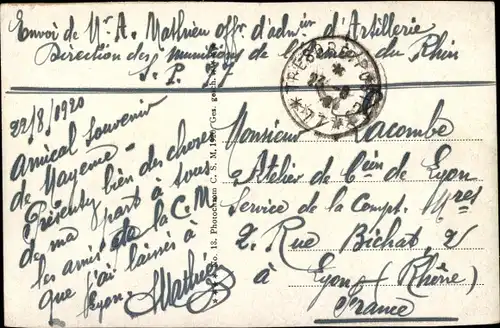 Envoi de Mr A. Mathieu offr. d'admon d'Artillerie
Direction des munitions de l'armée du Rhin
S. P. 77
TRESOR ET POSTES
22/8/1920
Amical souvenir
de Mayence
Présentez bien des choses
de ma part à tous
les amis de la C.M
que j'ai laissés à
Lyon. Mathieu
No. 18. Photochrom C. S. M. 1920 Ges. gesch.
Monsieur Lacombe
Atelier de Con de Lyon
Service de la Compt. Mres
2. Rue Bichat, 2
à Lyon (Rhône)
France